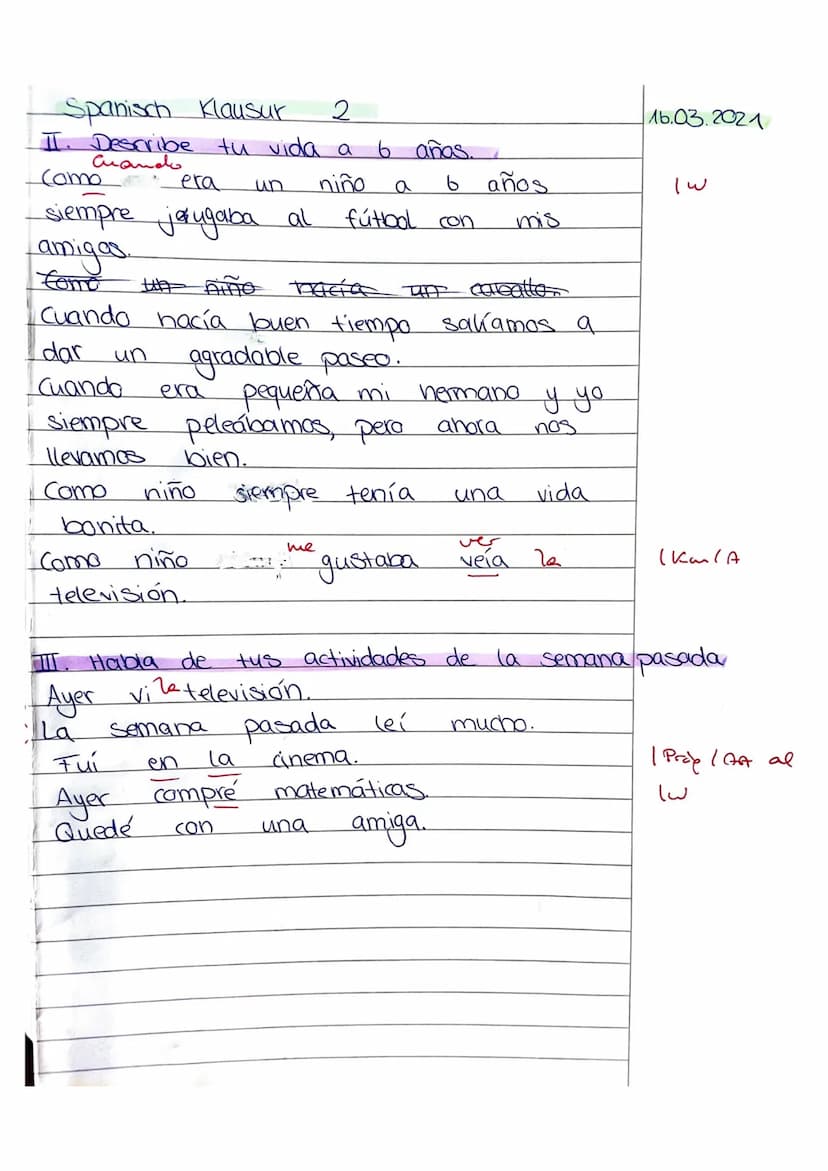 Spanisch Klausur 2
16.03.2021
II. Describe tu vida a 6 años.
Cuando
Como era un niño a 6 años
I W
siempre jougaba al fútbol con mis
amigos.
Como un niño hacía un caballo.
Cuando hacía buen tiempo salíamos a
dar un agradable paseo.
Cuando era pequeña mi hermano y yo
siempre peleábamos, pero ahora nos
llevamos bien.
Como niño siempre tenía una vida
bonita.
me ver
Como niño gustaba veía la
I Km I A
televisión.
III. Habla de tus actividades de la semana pasada
Ayer vi la televisión.
La semana pasada leí mucho.
Fuí en la cinema.
I Präp I Art al
Ayer compré matemáticas.
I W
Quedé con una amiga.